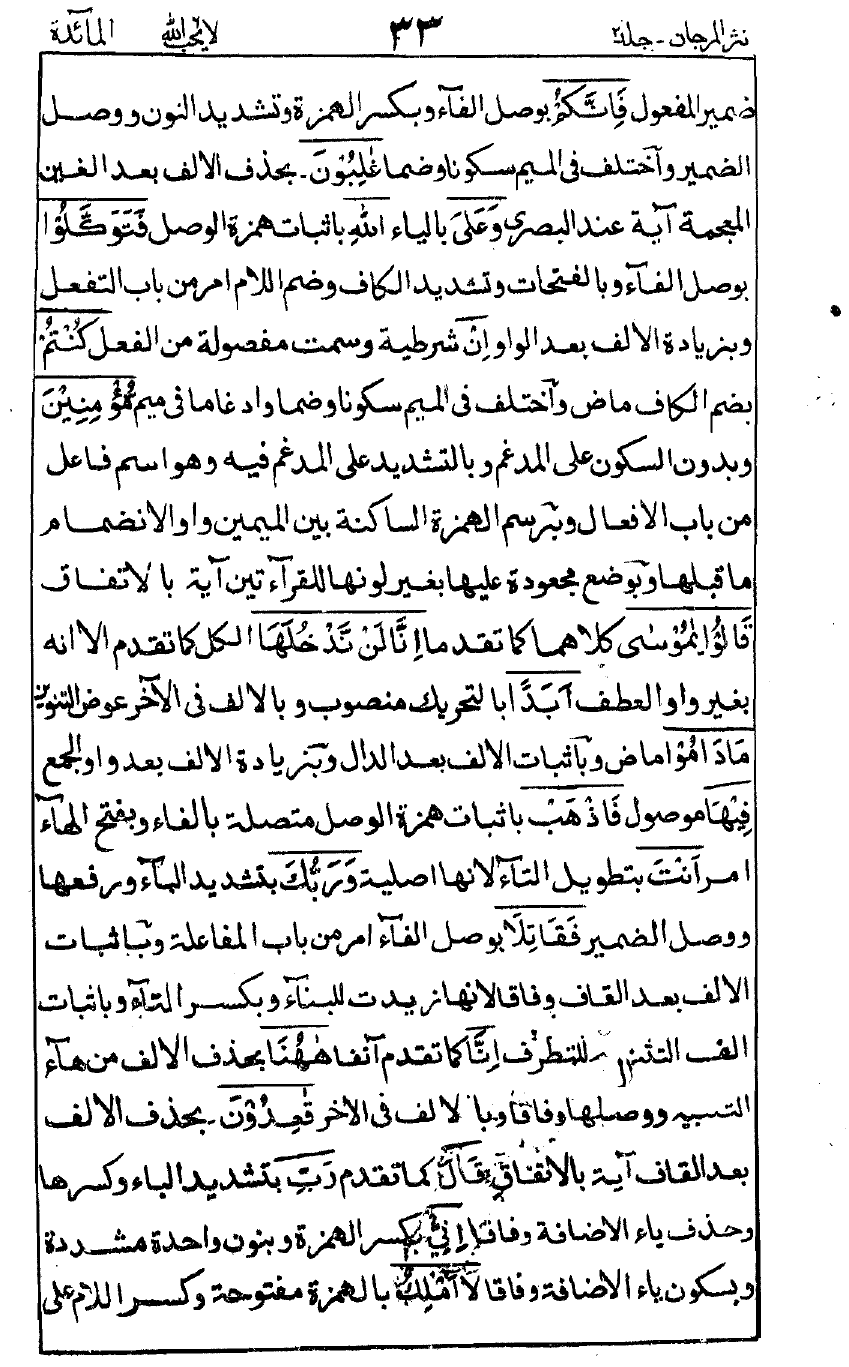 نثر المرجان - جلد٢ ٣٣ لا يحب الله المآئدة
ضمير المفعول فَاِنَّكُمْ بوصل الفآء وبكسر الهمزة وتشديد النون ووصل
الضمير وٱختلف فى الميم سكونا وضما غٰلِبُوْنَ ـ بحذف الالف بعد الغين
المعجمة آية عند البصرى وَعَلَى بالياء اللهِ باثبات همزة الوصل فَتَوَكَّلُوْا
بوصل الفآء وبالفتحات وتشديد الكاف وضم اللام امر من باب التفعل
وبزيادة الالف بعد الواو اِنْ شرطية وسمت مفصولة من الفعل كُنْتُمْ
بضم الكاف ماض وٱختلف فى الميم سكونا وضما وادغاما فى ميم مُّؤْمِنِيْنَ
وبدون السكون على المدغم وبالتشديد على المدغم فيه وهو اسم فاعل
من باب الافعال وبرسم الهمزة الساكنة بين الميمين واوا لانضمام
ما قبلها وبوضع مجعودة عليها بغير لونها للقرآءتين آية بالاتفاق
قَالُوْا يٰمُوْسٰى كلاهما كما تقدما اِنَّا لَنْ نَّدْخُلَهَا الكل كما تقدم الا انه
بغير واو العطف اَبَدًا بالتحريك منصوب وبالالف فى الآخر عوض التنوين
مَادَامُوْا ماض وباثبات الالف بعد الدال وبزيادة الالف بعد واو الجمع
فِيْهَا موصول فَاذْهَبْ باثبات همزة الوصل متصلة بالفاء وبفتح الهآء
امر اَنْتَ بتطويل التآء لانها اصلية وَرَبُّكَ بتشديد البآء ورفعها
ووصل الضمير فَقَاتِلَا بوصل الفآء امر من باب المفاعلة وباثبات
الالف بعد القاف وفاقا لانها زيدت للبنآء وبكسر التآء وباثبات
الف للتطرف اِنَّا كما تقدم آنفا هٰهُنَا بحذف الالف من هآء
التنبيه ووصلها وفاقا وبالالف فى الاخر قٰعِدُوْنَ ـ بحذف الالف
بعد القاف آية بالاتفاق قَالَ كما تقدم رَبِّ بتشديد الباء وكسرها
وحذف ياء الاضافة وفاقا اِنِّىْ بكسر الهمزة وبنون واحدة مشددة
وبسكون ياء الاضافة وفاقا لَا اَمْلِكُ بالهمزة مفتوحة وكسر اللام على